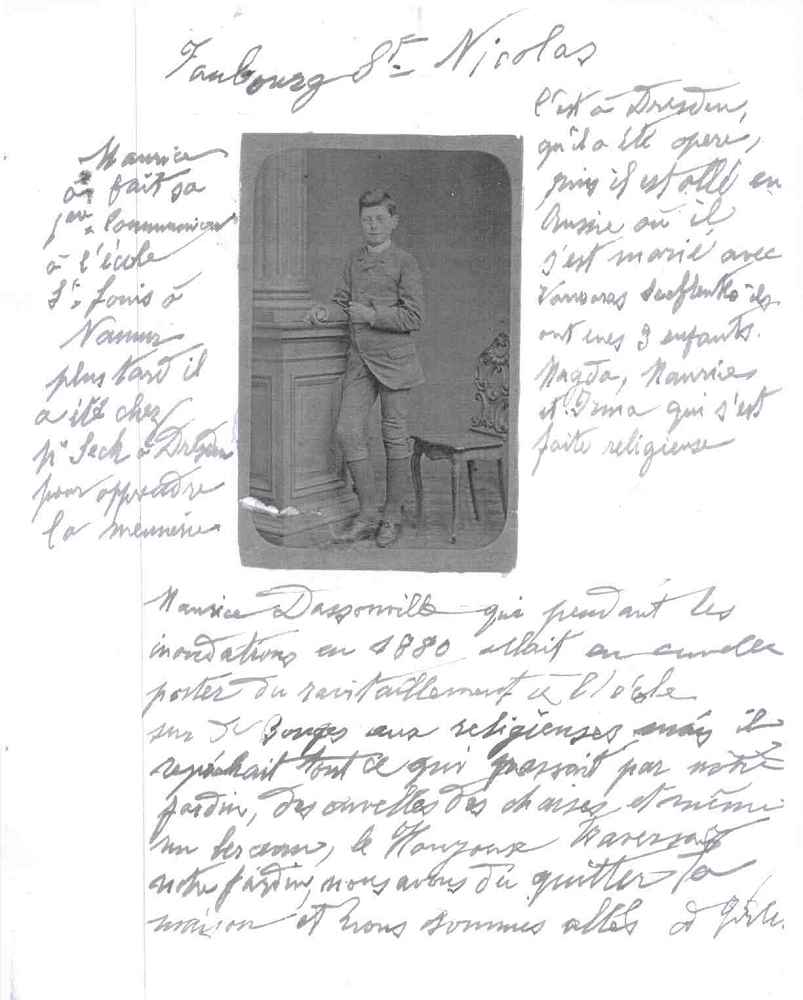 Faubourg St Nicolas
Maurice
a fait sa
1ère Communion
à l'école
St. Louis à
Namur
plus tard il
a été chez
Mr Seck à Dresden
pour apprendre
la meunerie
c'est à Dresden,
qu'il a été opéré,
puis il est allé en
Russie où il
s'est marié avec
ils
ont eues 3 enfants.
Magda, Maurice
et Irma qui s'est
faite religieuse
Maurice Dassonville qui pendant les
inondations en 1880 allait en cuvelle
porter du ravitaillement à l'école
sur aux religieuses mais il
repêchait tout ce qui passait par notre
jardin, des cuvelles des chaises et même
un berceau, le Houyoux traversait
notre jardin, nous avons dû quitter la
maison et nous sommes allés à